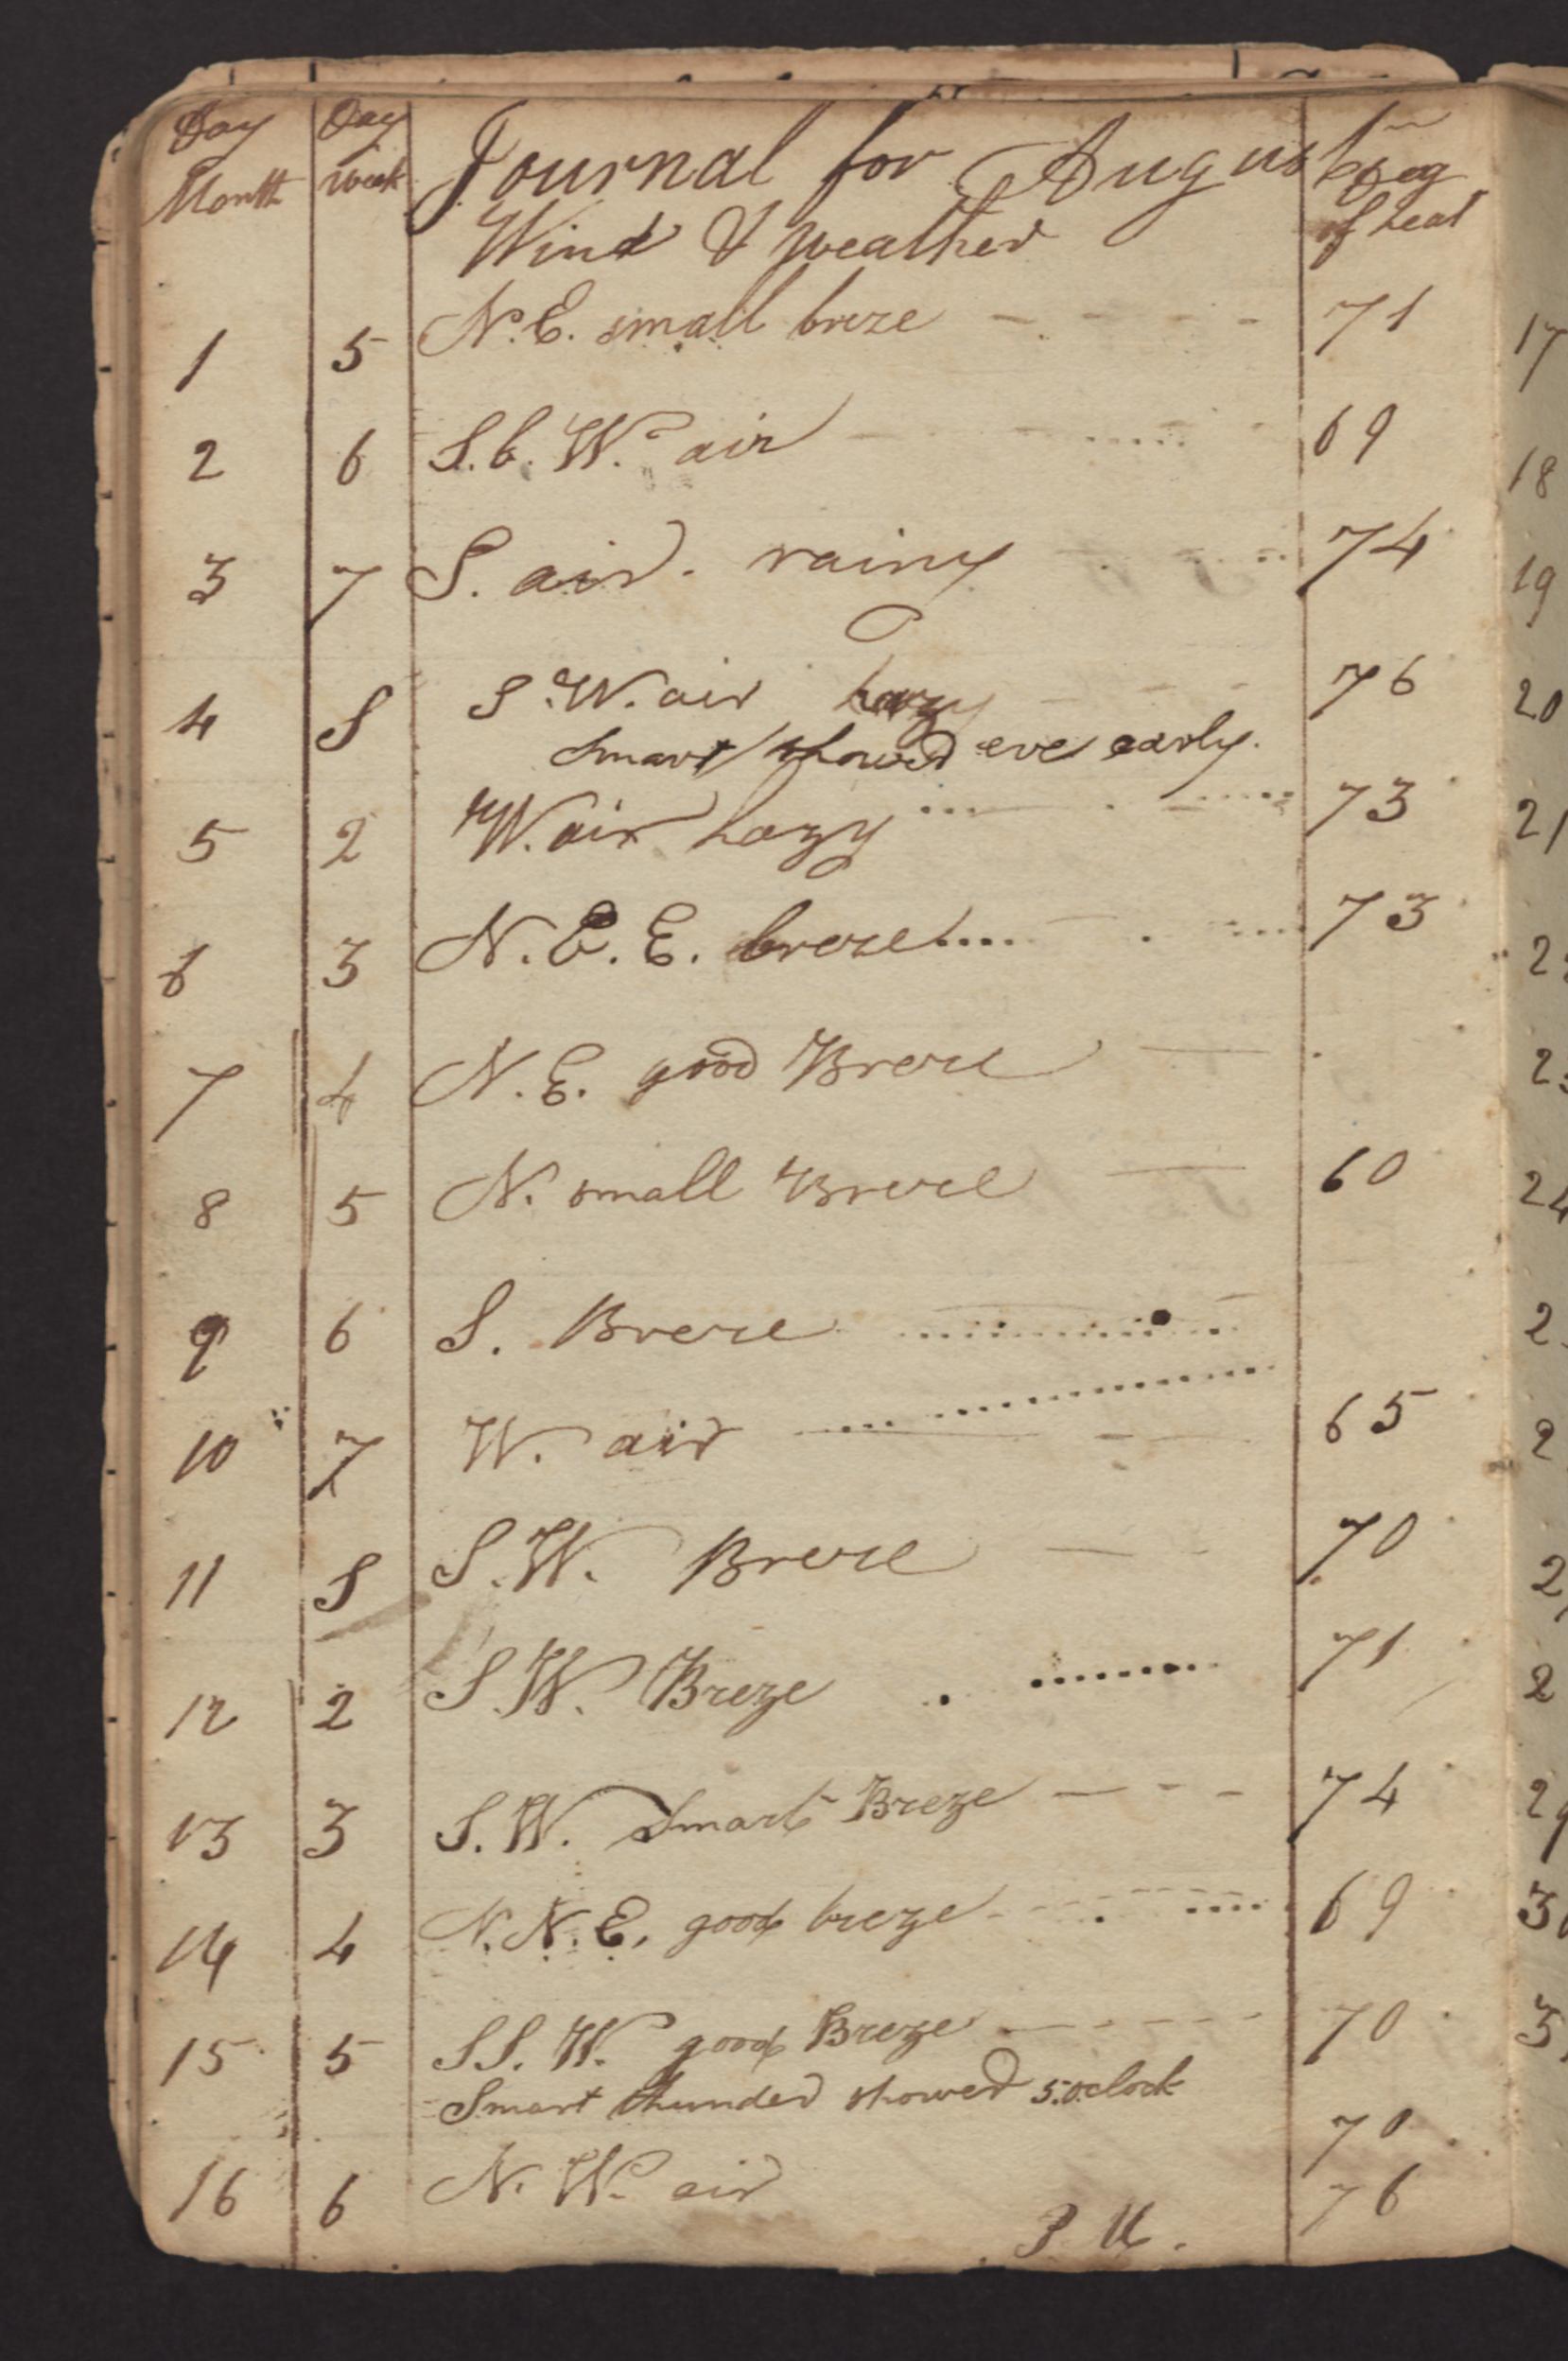 Day Month Day week Journal for August Deg of heat
Wind & weather
1 5 N.E. small breze 71
2 6 S.b.W. air 69
3 7 S. air. rainy 74
4 S S.W. air hazy 76
Smart shower eve early.
5 2 W. air hazy 73
6 3 N.E.E. breze 73
7 4 N.E. good Breze
8 5 N. small Breze 60
9 6 S. Breze
10 7 W. air 65
11 S S.W. Breze 70
12 2 S.W. Breze 71
13 3 S.W. Smart Breze 74
14 4 N.N.E, good breze 69
15 5 S S. W. good Breze 70
Smart thunder shower 5.oclock
70
16 6 N. W. air 76
17
18
19
20
21
24